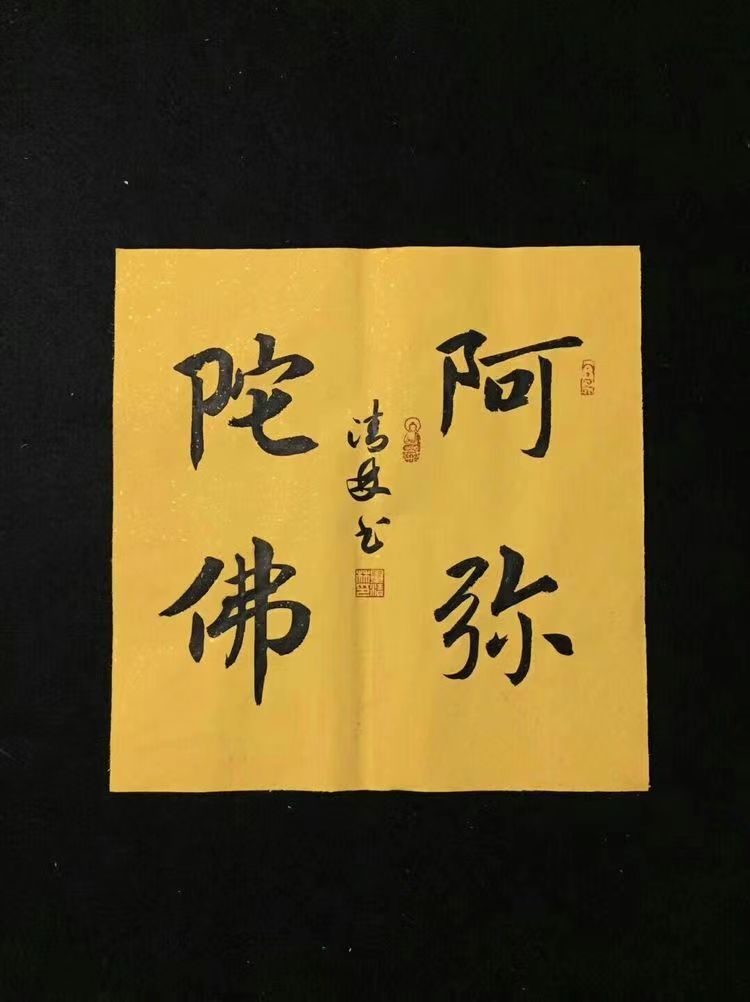 阿弥
陀佛
清
书